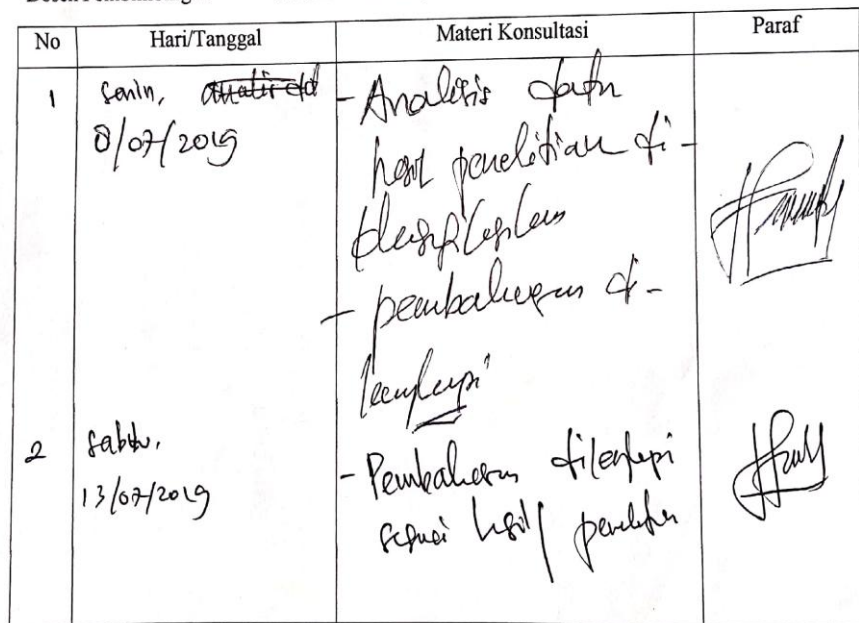 No Hari/Tanggal Materi Konsultasi Paraf
1 Senin, - Analisis data
8/07/2019 hasil penelitian di-
deskripsikan
- pembahasan di-
lengkapi
2 Sabtu, - Pembahasan dilengkapi
13/07/2019 sesuai hasil penelitian